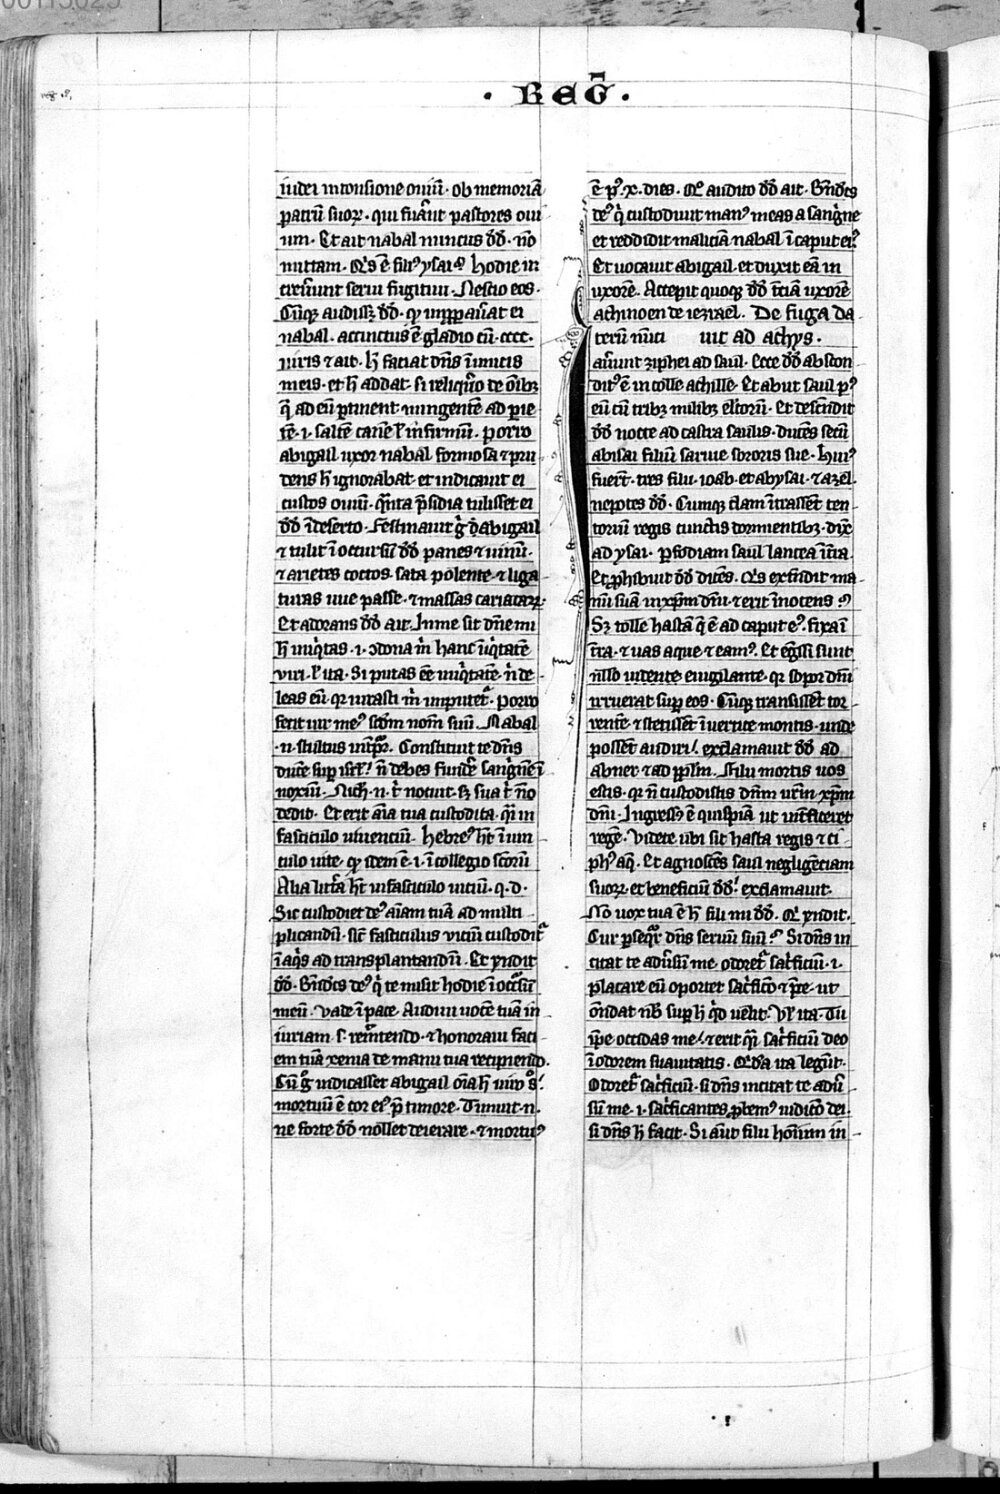 · REḠ ·
iudei in tonsione ouiū· Ob memoriā
patrū suoꝝ· qui fuer̄unt pastores oui
um· Et ait nabal nuncijs dd̄· nō
mittam· Qͥs ē filiꝰ ysai ꝰ hodie in
creuerunt serui fugitiui· Nescio eos·
Cūqꝫ audissꝫ dd̄· qꝫ impropāuat ei
nabal· accinctus ē gladio cū cccc·
uiris ⁊ ait· h̄ faciat dn̄s inimicis
meis· et h̄ addat· si reliquero de oīb
q̄ ad eū ꝑtinent mingentē ad parie
tē· i· saltē canē ł infirmū· porro
abigail uxor nabal formosa ⁊ pru
dens h̄ ignorabat· et indicauit ei
custos ouiū· qͣnta p̄sidia tulisset ei
dd̄ ī deserto· Festinauit g̊ abigail
⁊ tulit ī occursū dd̄ panes ⁊ uinū·
⁊ arietes coctos· sata polente· ⁊ liga
turas uue passe· ⁊ massas cariataꝝ·
Et adorans dd̄ ait· In me sit dn̄e mi
h̄ iniqͥtas· i· ꝯdona m̄ hanc iniqͥtatē
viri· ł ita· Si putas eē iniqͥtatē· n̄ de
leas eū· qꝛ uitasti m̄ imputetͬ· Porro
fecit uir meꝰ scdm̄ nom̄ suū· Nabal
·n· stultus int̄pr̄· Constituit te dn̄s
ducē suꝑ isrł· n̄ debes fundere sanguinē ī
noxiū· Nichil n̄ tͥ nocuit· sꝫ sua tͥ nō
dedit· Et erit aīa tua custodita· qͣsi in
fasciculo uiuenciū· hebreꝰ hꝫ ī uin
culo uite· qꝫ idem ē· i· ī collegio sc̄orū
Alia litt̄a hꝫ in fasciculo uiciū· q· d·
Sic custodiet deꝰ aīam tuā ad multi
plicandū· sic̄ fasciculus viciū custoditͬ
ī aqͥs ad transplantandū· Et r̄ndit
dd̄· Bn̄dc̄s deꝰ qͥ te misit hodie ī occursū
meū· Vade ī pace· Audiui uocē tuā in
iuriam s· remittendo· ⁊ honoraui faci
em tuā xenia de manu tua recipiendo·
Cū g̊ indicasset abigail oīa h̄ uiro s·
mortuū ē cor eiꝰ p̄ timore· Timuit ·n·
ne forte dd̄ nollet deierare· ⁊ mortuꝰ
ē pꝰ ·x· dies· Qd̄ audito dd̄ ait· Bn̄dc̄s
deꝰ qͥ custodiuit manꝰ meas a sanguine
et reddidit maliciā nabal ī caput eiꝰ
Et uocauit abigail· et duxit eā in
uxorē· Accepit quoqꝫ dd̄ tciā uxorē
achinoen de iezrael· De fuga da
terū nūci uit ad achys·
auerunt ziphei ad saul· Ecce dd̄ abscon
ditꝰ ē in colle achille· Et abiit saul pꝰ
eū cū tribꝫ milibꝫ electorū· Et descendit
dd̄ nocte ad castra saulis· ducēs secū
abisai filiū saruie sororis sue· huiꝰ
fuer̄t tres filii· ioab· et abysai· ⁊ azel
nepotes dd̄· Cumqꝫ clam ītrassēt ten
toriū regis cunctis dormientibꝫ· dix̄
ad ysai· perfodiam saul lancea ī tr̄a·
Et ꝓhibuit dd̄ dicēs· Qͥs extendit ma
nū suā in xp̄m dn̄i· ⁊ erit īnocens ꝰ
Sꝫ tolle hastā q̄ ē ad caput eꝰ· fixa ī
tr̄a· ⁊ uas aque ⁊ eamꝰ· Et egressi sunt
nullo uidente· euigilante· qꝛ sopor dn̄i
irruerat suꝑ eos· Cūqꝫ transissent tor
rentē ⁊ stetissēt ī uertice montis· unde
possent audiri· exclamauit dd̄ ad
abner ⁊ ad ppl̄m· Filii mortis uos
estis· qꝛ n̄ custodistis dn̄m urm̄ xp̄m
dn̄i· Ingressꝰ ē quispiā ut īterficeret
regē· Videte ubi sit hasta regis ⁊ ci
phꝰ aq̄· Et agnoscēs saul negligēciam
suoꝝ· et beneficiū dd̄· exclamauit·
Nō uox tua ē h̄ fili mi dd̄· Qd̄ r̄ndit·
Cur ꝑseqͥͬ dn̄s seruū suū ꝰ Si dn̄s in
citat te aduersū me· odoretͬ sacͥficiū· i·
placare eū oportet sacͥficio ⁊ p̄ce· ut
on̄dat nobis suꝑ h̄ qͥd uelit· Vł ita· Tu
ip̄e occidas me· ⁊ erit qͣsi sacͥficiū deo
ī odorem suauitatis· Qͥda ita legunt·
Odoretͬ sacͥficiū· si dn̄s incitat te adū
sū me· i· sacͥficantes ꝓbemꝰ iudiciō dei·
si dn̄s h̄ facit· Si aut̄ filii hoīum in